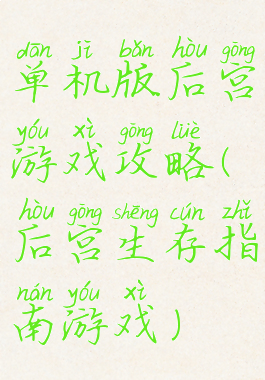 dān jī bǎn hòu gōng
单机版后宫
yóu xì gōng lüè
游戏攻略(
hòu gōng shēng cún zhǐ
后宫生存指
nán yóu xì
南游戏)